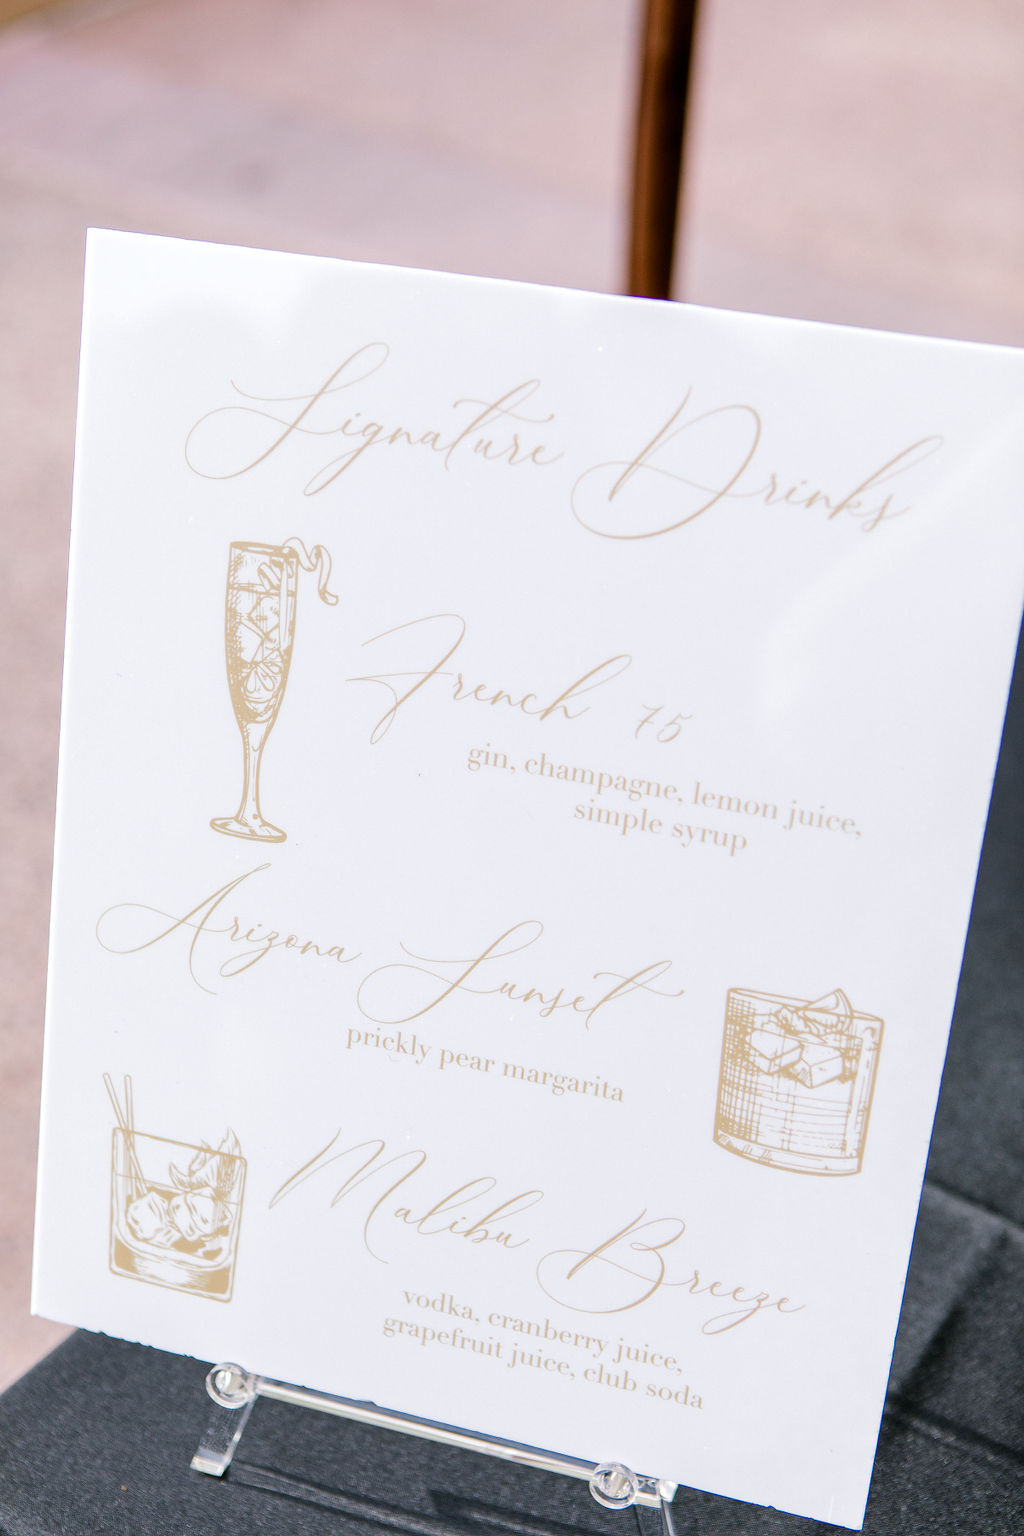 Signature Drinks
French 75
gin, champagne, lemon juice,
simple syrup
Arizona Sunset
prickly pear margarita
Malibu Breeze
vodka, cranberry juice,
grapefruit juice, club soda